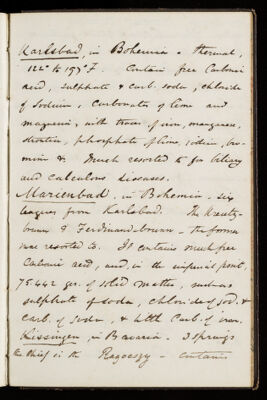 Karlsbad, in Bohemia - thermal,
122° to 197° F. Contain free Carbonic
acid, sulphate & carb. soda, chloride
of Sodium, Carbonates of lime and
magnesia, with traces of iron, manganese,
strontia, phosphate of lime, iodine, bro-
mine &. Much resorted to for biliary
and calculous diseases.
Marienbad, in Bohemia - six
leagues from Karlsbad. The Kreutz-
brunn & Ferdinandsbrunn - the former
more resorted to. It contains much free
Carbonic acid, and, in the imperial pint,
75.442 grs. of solid matter, such as
sulphate of soda, chloride of sod. &
carb. of soda, & little carb. of iron.
Kissingen, in Bavaria. 3 springs
the chief is the Ragoczy - contains